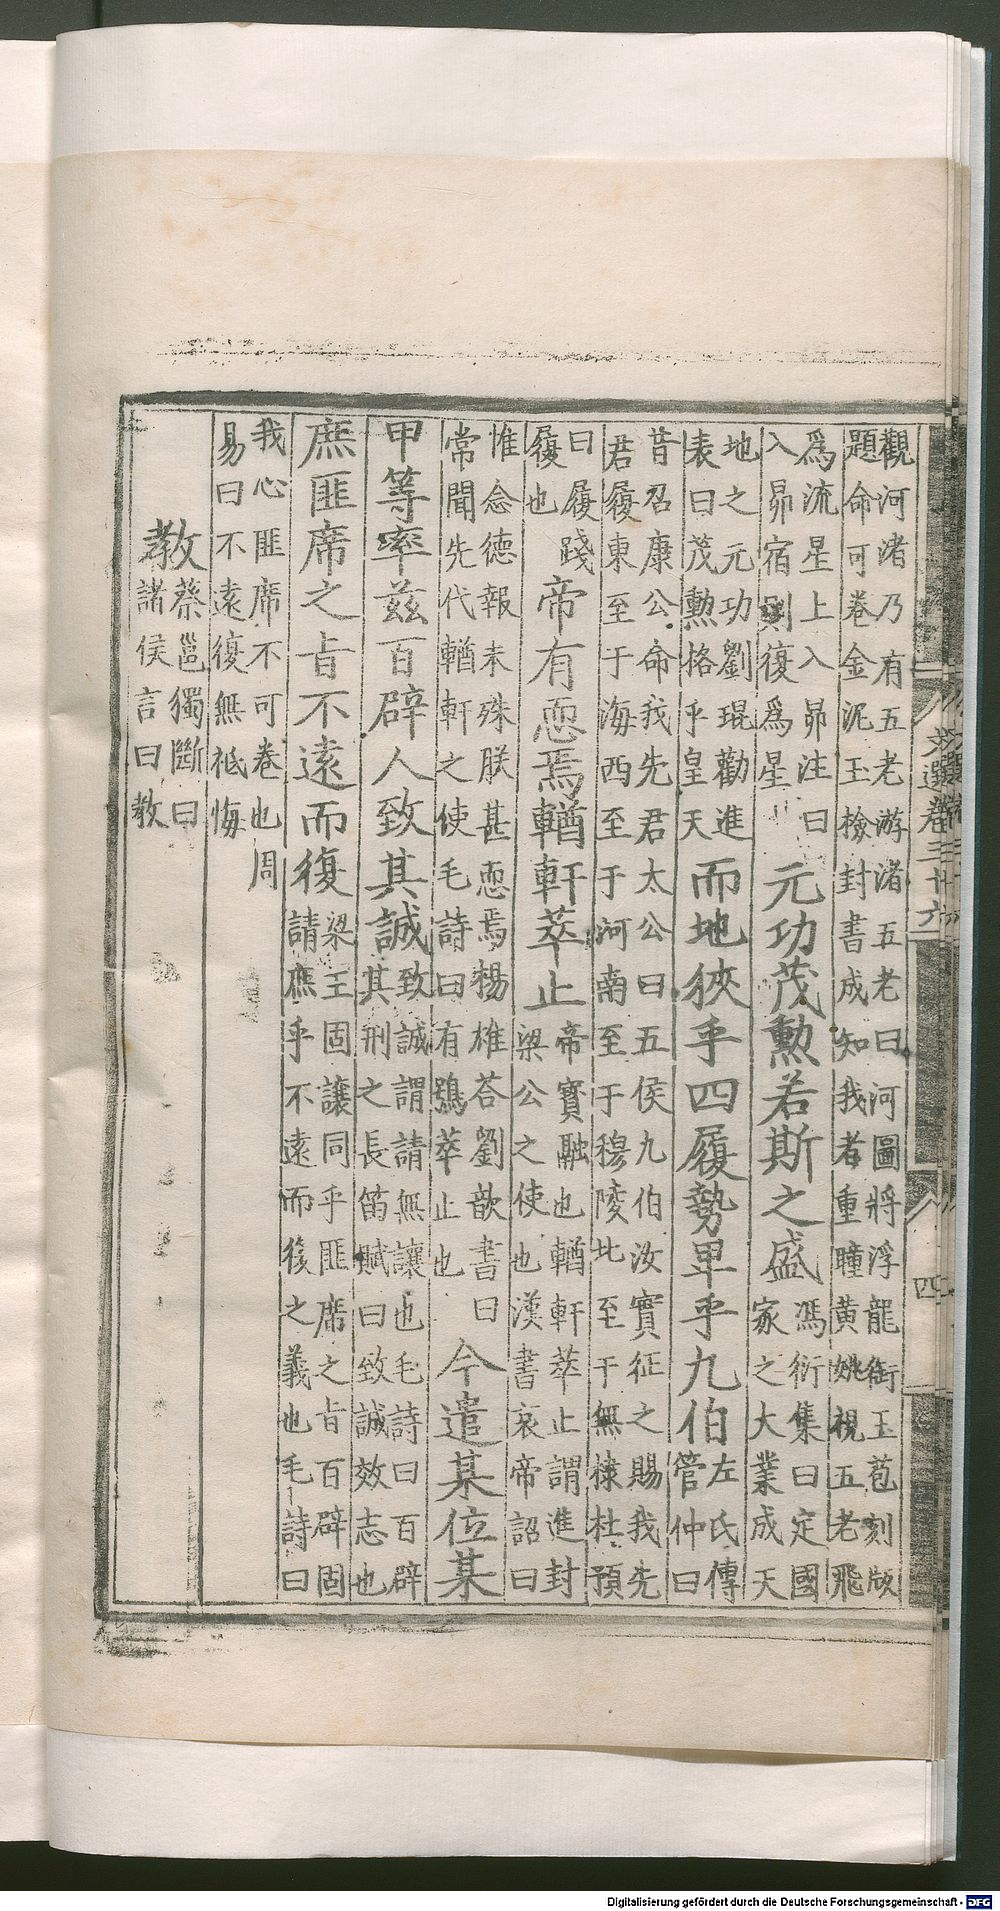 觀河渚乃有五老游渚五老曰河圖將浮龍銜玉苞刻版
題命可卷金泥玉檢封書成知我者重瞳黄姚視五老飛
爲流星上入昴注曰
入昴宿則復爲星
元功茂勲若斯之盛
馮衍集曰定國
家之大業成天
地之元功劉琨勸進
表曰茂勲格乎皇天
而地狹乎四履勢卑乎九伯
左氏傳
管仲曰
昔召康公命我先君太公曰五侯九伯汝實征之賜我先
君履東至于海西至于河南至于穆陵北至于無棣杜預
曰履踐
履也
帝有恧焉輶軒萃止
帝寳融也輶軒萃止謂進封
梁公之使也漢書哀帝詔曰
惟念德報未殊朕甚恧焉揚雄荅劉歆書曰
常聞先代輶軒之使毛詩曰有鴞萃止也
今遣某位某
甲等率兹百辟人致其誠
致誠謂請無讓也毛詩曰百辟
其刑之長笛賦曰致誠效志也
庶匪席之旨不遠而復
梁王固讓同乎匪席之旨百辟固
請庶乎不遠而復之義也毛詩曰
我心匪席不可卷也周
易曰不遠復無祗悔
教
蔡邕獨斷曰
諸侯言曰教
文選卷三十六
四
Digitalisierung gefördert durch die Deutsche Forschungsgemeinschaft - DFG